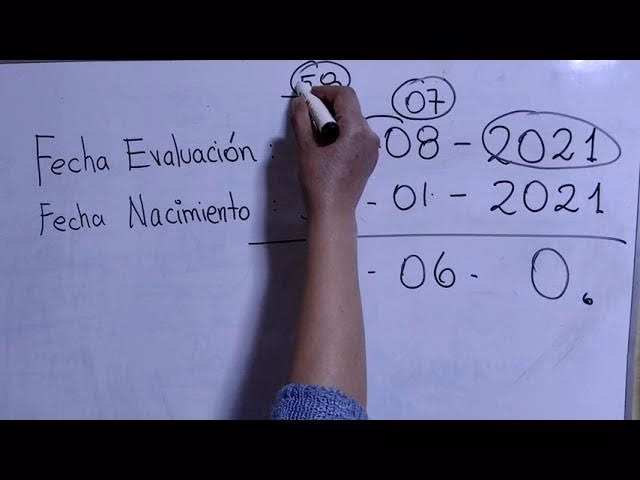 07
Fecha Evaluación : 08 - 2021
Fecha Nacimiento : - 01 - 2021
- 06 - 0.
6